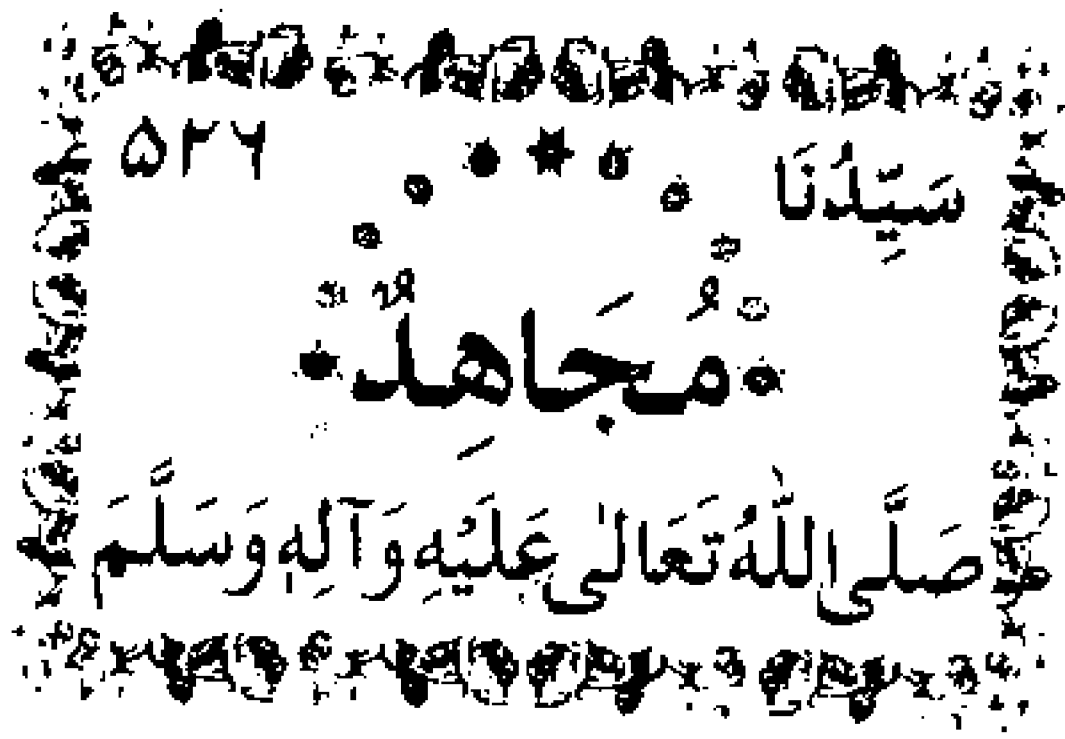 سَيِّدُنَا ۵۲۶
مُجَاهِدٌ
صَلَّی اللّٰهُ تَعَالٰی عَلَيْهِ وَآلِهٖ وَسَلَّمَ